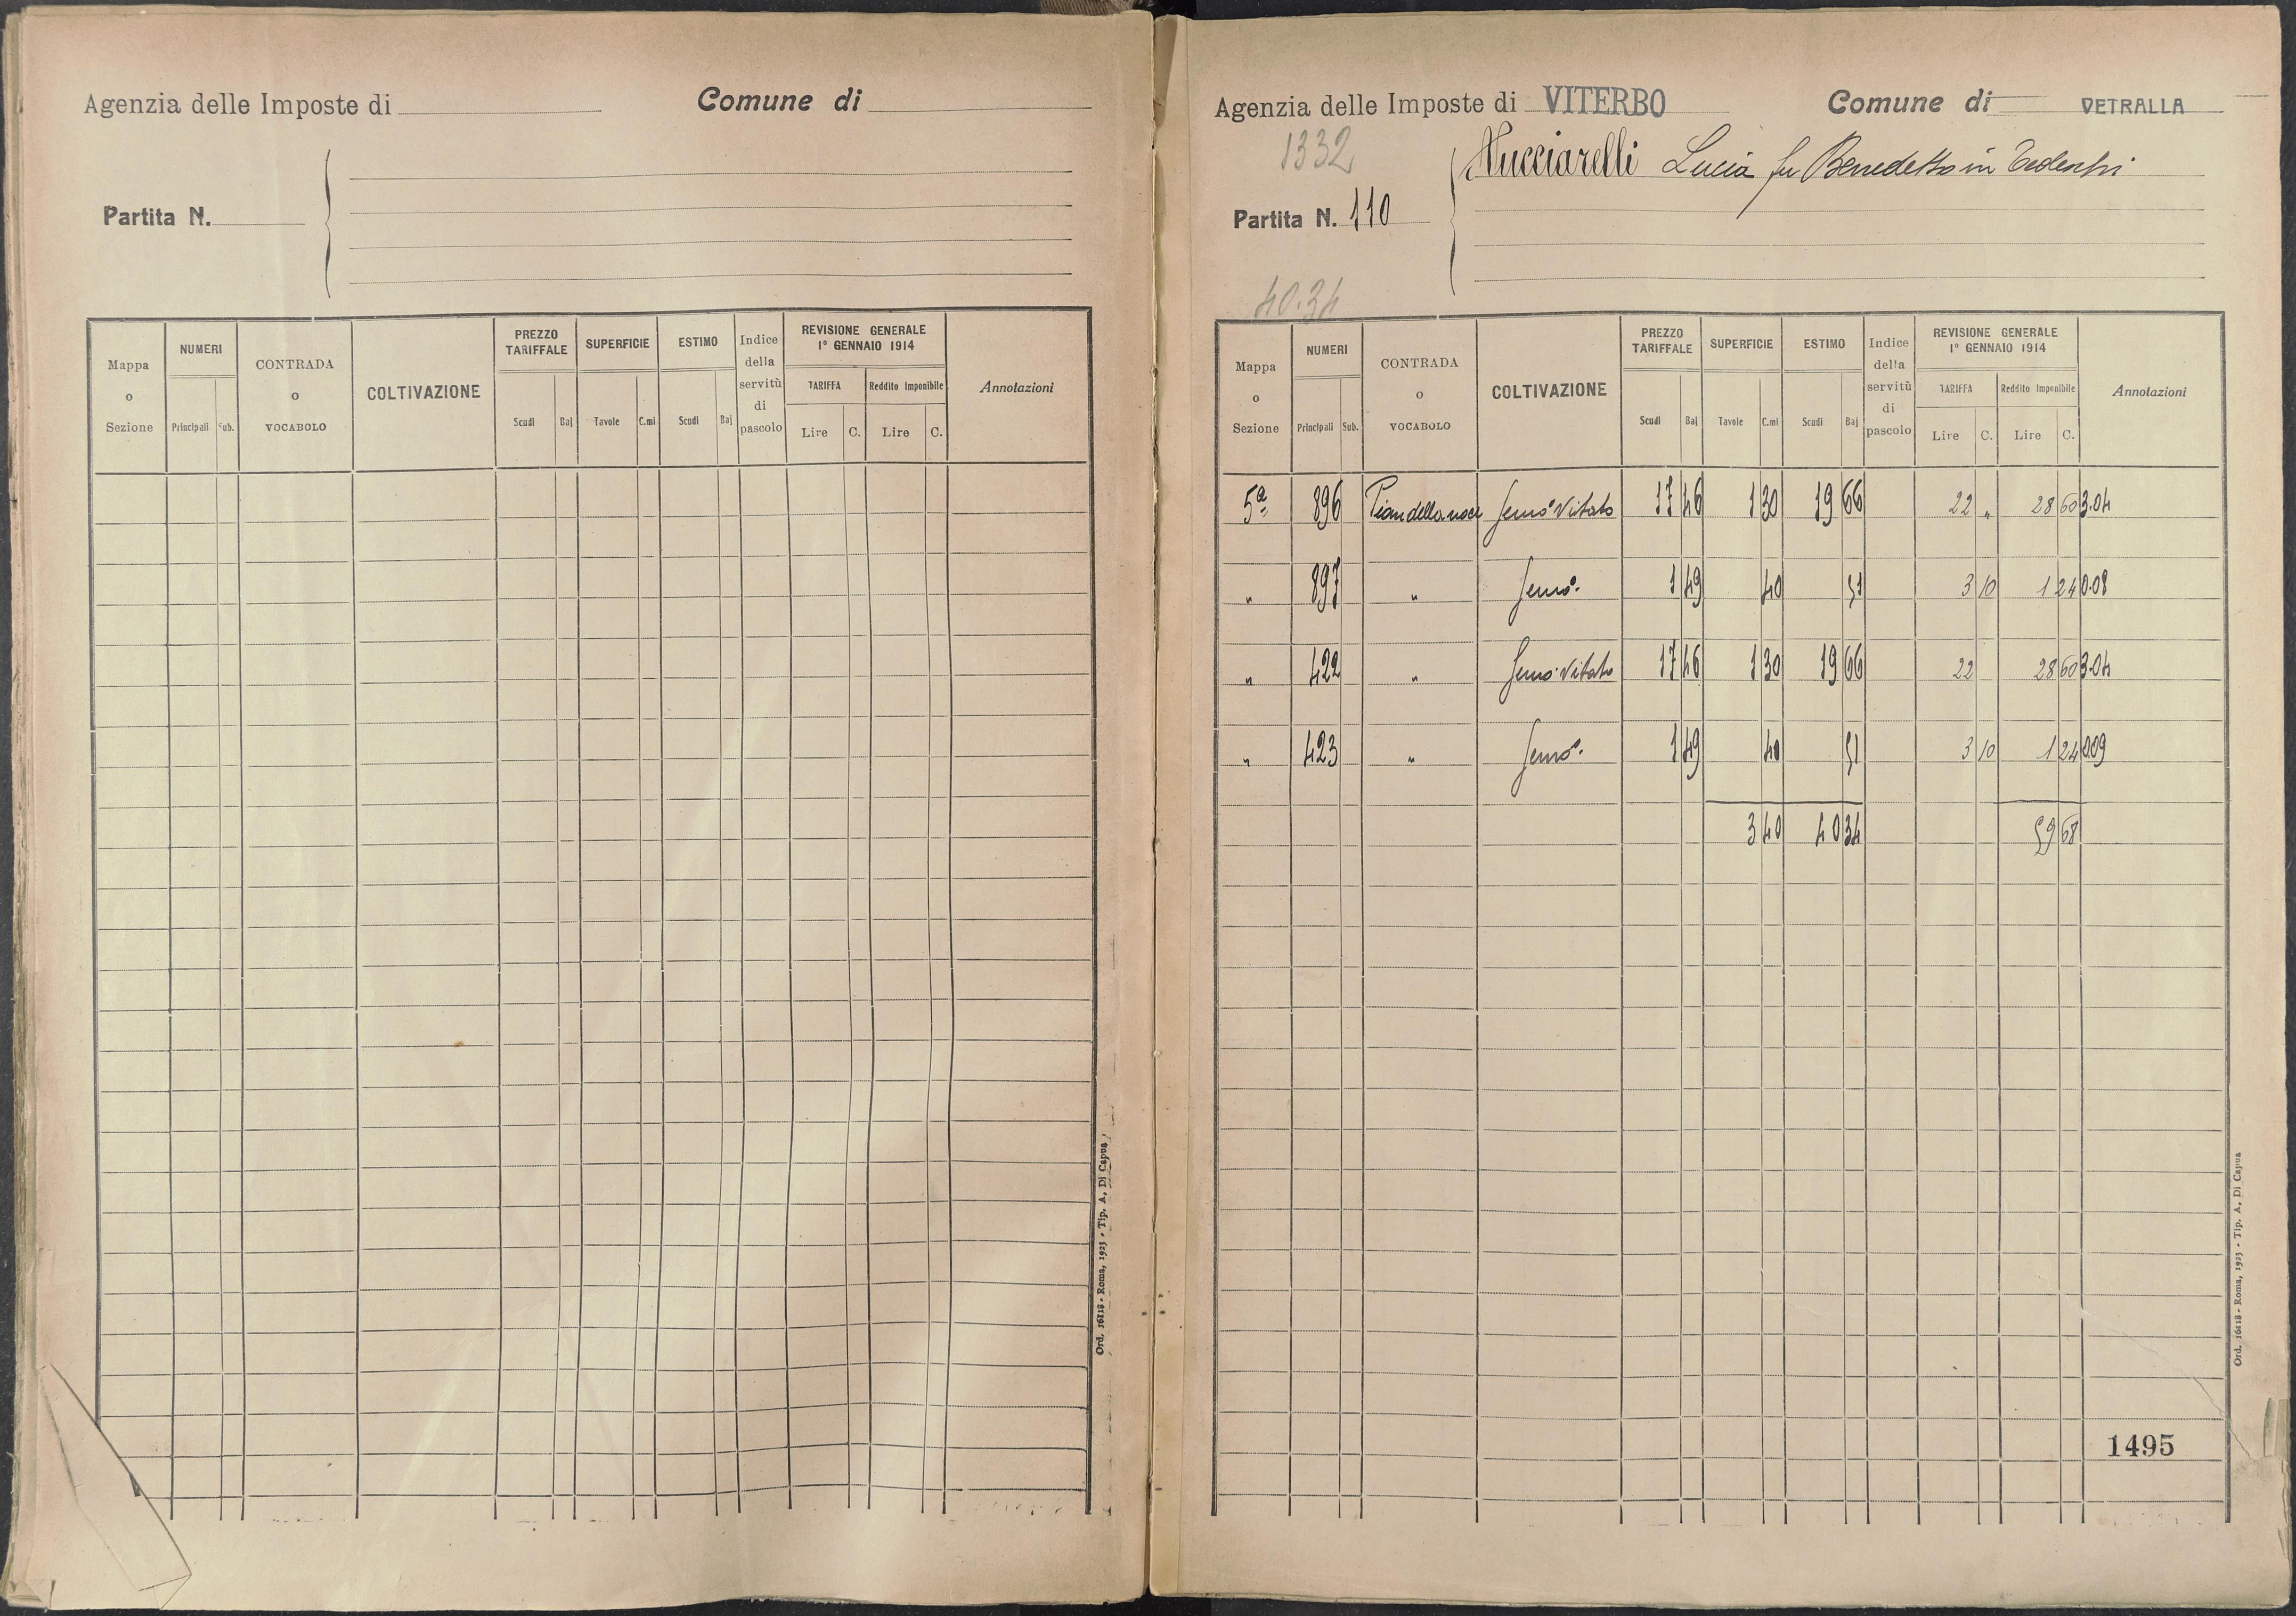 Agenzia delle Imposte di Comune di
Partita N.
Mappa o Sezione NUMERI Principali Sub. CONTRADA o VOCABOLO COLTIVAZIONE PREZZO TARIFFALE Scudi Baj SUPERFICIE Tavole C.mi ESTIMO Scudi Baj Indice della servitù di pascolo REVISIONE GENERALE 1° GENNAIO 1914 TARIFFA Lire C. Reddito Imponibile Lire C. Annotazioni
Ord. 16118 - Roma, 1923 - Tip. A, Di Capua
Agenzia delle Imposte di VITERBO Comune di VETRALLA
1332
Nucciarelli Lucia fu Benedetto in Tedeschi
Partita N. 110
40.34
Mappa o Sezione NUMERI Principali Sub. CONTRADA o VOCABOLO COLTIVAZIONE PREZZO TARIFFALE Scudi Baj SUPERFICIE Tavole C.mi ESTIMO Scudi Baj Indice della servitù di pascolo REVISIONE GENERALE 1° GENNAIO 1914 TARIFFA Lire C. Reddito Imponibile Lire C. Annotazioni
5ª 896 Pian della noce Semo Vitato 17 46 1 30 19 66 22 " 28 60 3.04
" 897 " Semo. 1 49 40 51 3 10 1 24 0.08
" 422 " Semo Vitato 17 46 1 30 19 66 22 28 60 3.04
" 423 " Semo. 1 49 40 51 3 10 1 24 0.09
3 40 40 34 59 68
1495
Ord. 16118 - Roma, 1923 - Tip. A, Di Capua